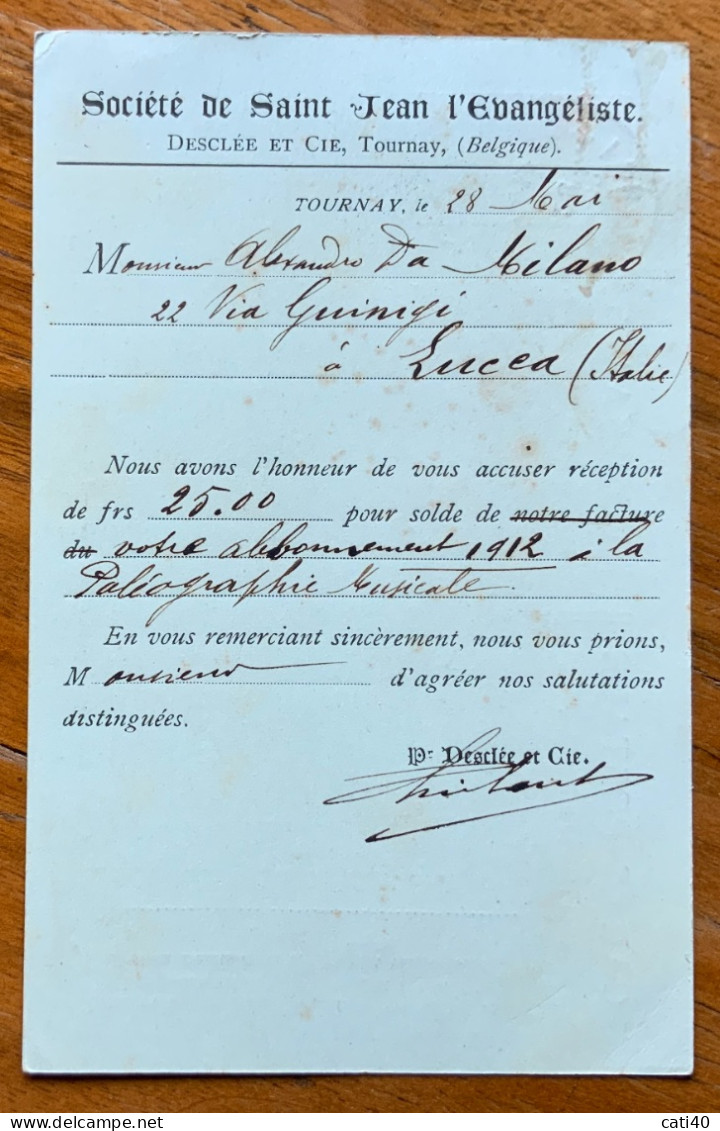 Société de Saint Jean l'Evangéliste.
DESCLÉE ET CIE, Tournay, (Belgique).
TOURNAY, le 28 Mai
Monsieur Alexandro Da Milano
22 Via Guinigi
à Lucca (Italie)
Nous avons l'honneur de vous accuser réception
de frs 25.00 pour solde de notre facture
du votre abbonnement 1912 à la
Paléographie Musicale.
En vous remerciant sincèrement, nous vous prions,
Monsieur d'agréer nos salutations
distinguées.
Pr Desclée et Cie.
cati40